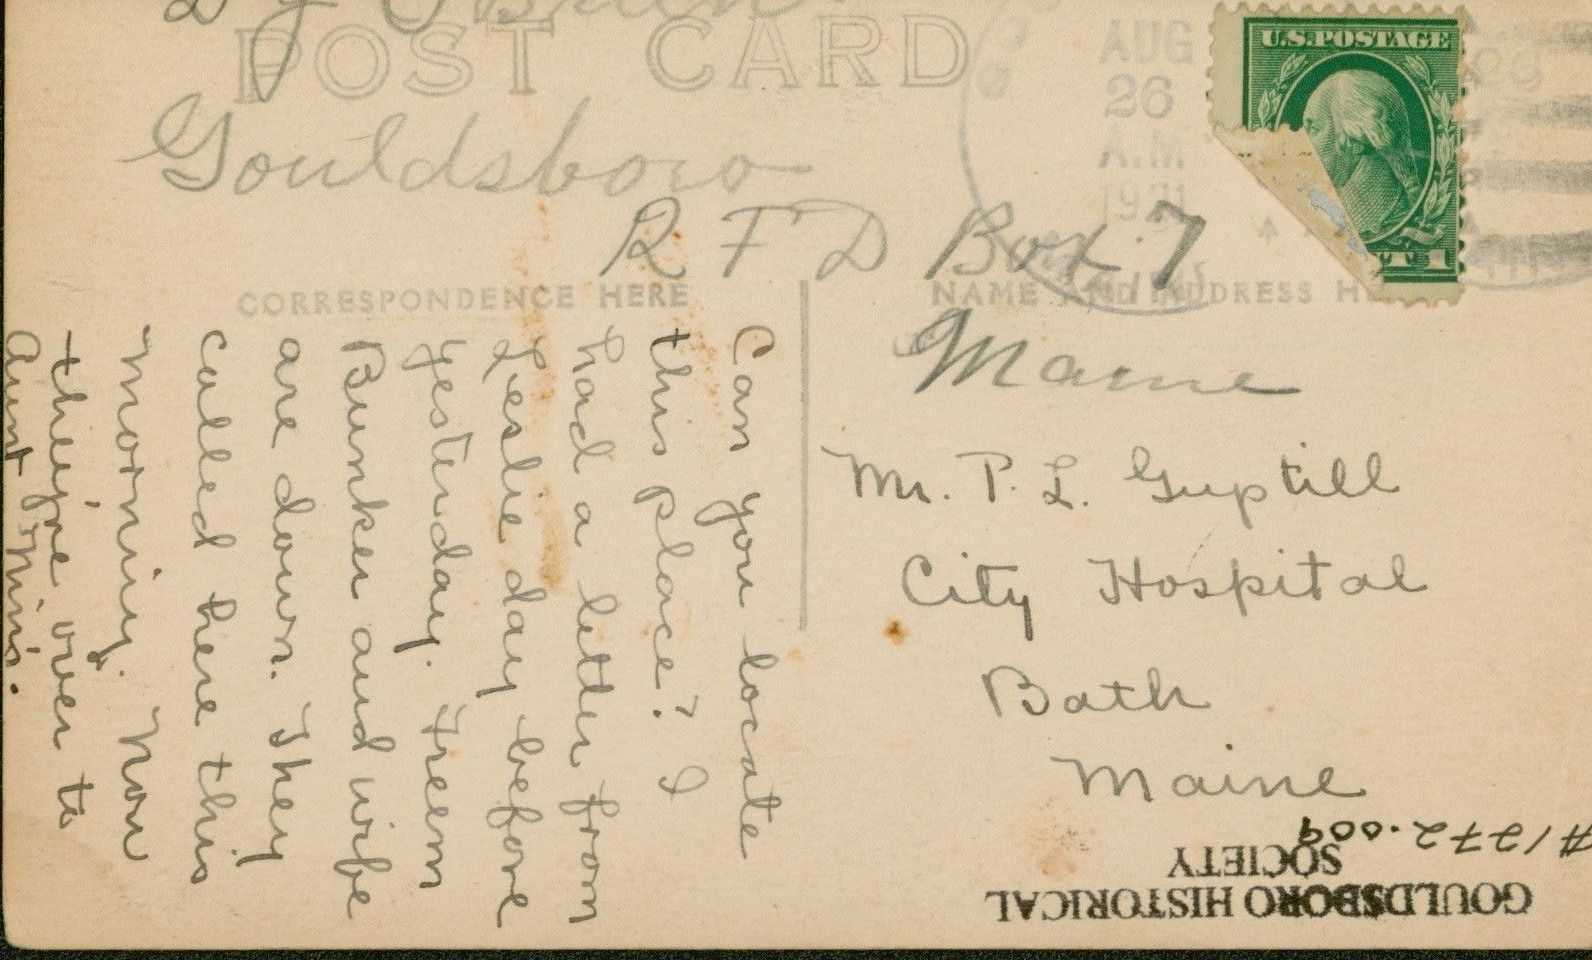 D J O'Brien
POST CARD
Gouldsboro
R F D Box 7
Maine
AUG
26
A.M
1921
U.S.POSTAGE
1
CORRESPONDENCE HERE
NAME AND ADDRESS HE
Can you locate
this place? I
had a letter from
Leslie day before
yesterday. Freem
Bunker and wife
are down. They
called here this
morning. Now
they're over to
Aunt Min's.
Mr. P. L. Guptill
City Hospital
Bath
Maine
GOULDSBORO HISTORICAL
SOCIETY
#1272.009